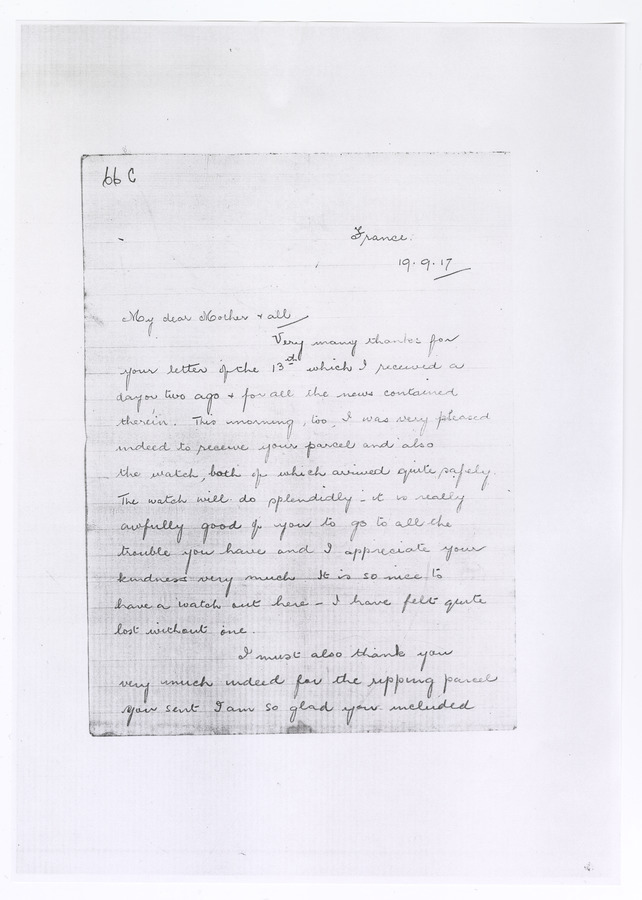 66 C
France.
19.9.17
My dear Mother & all
Very many thanks for
your letter of the 13th which I received a
day or two ago & for all the news contained
therein. This morning, too, I was very pleased
indeed to receive your parcel and also
the watch, both of which arrived quite safely.
The watch will do splendidly – it is really
awfully good of you to go to all the
trouble you have and I appreciate your
kindness very much. It is so nice to
have a watch out here – I have felt quite
lost without one.
I must also thank you
very much indeed for the ripping parcel
you sent I am so glad you included